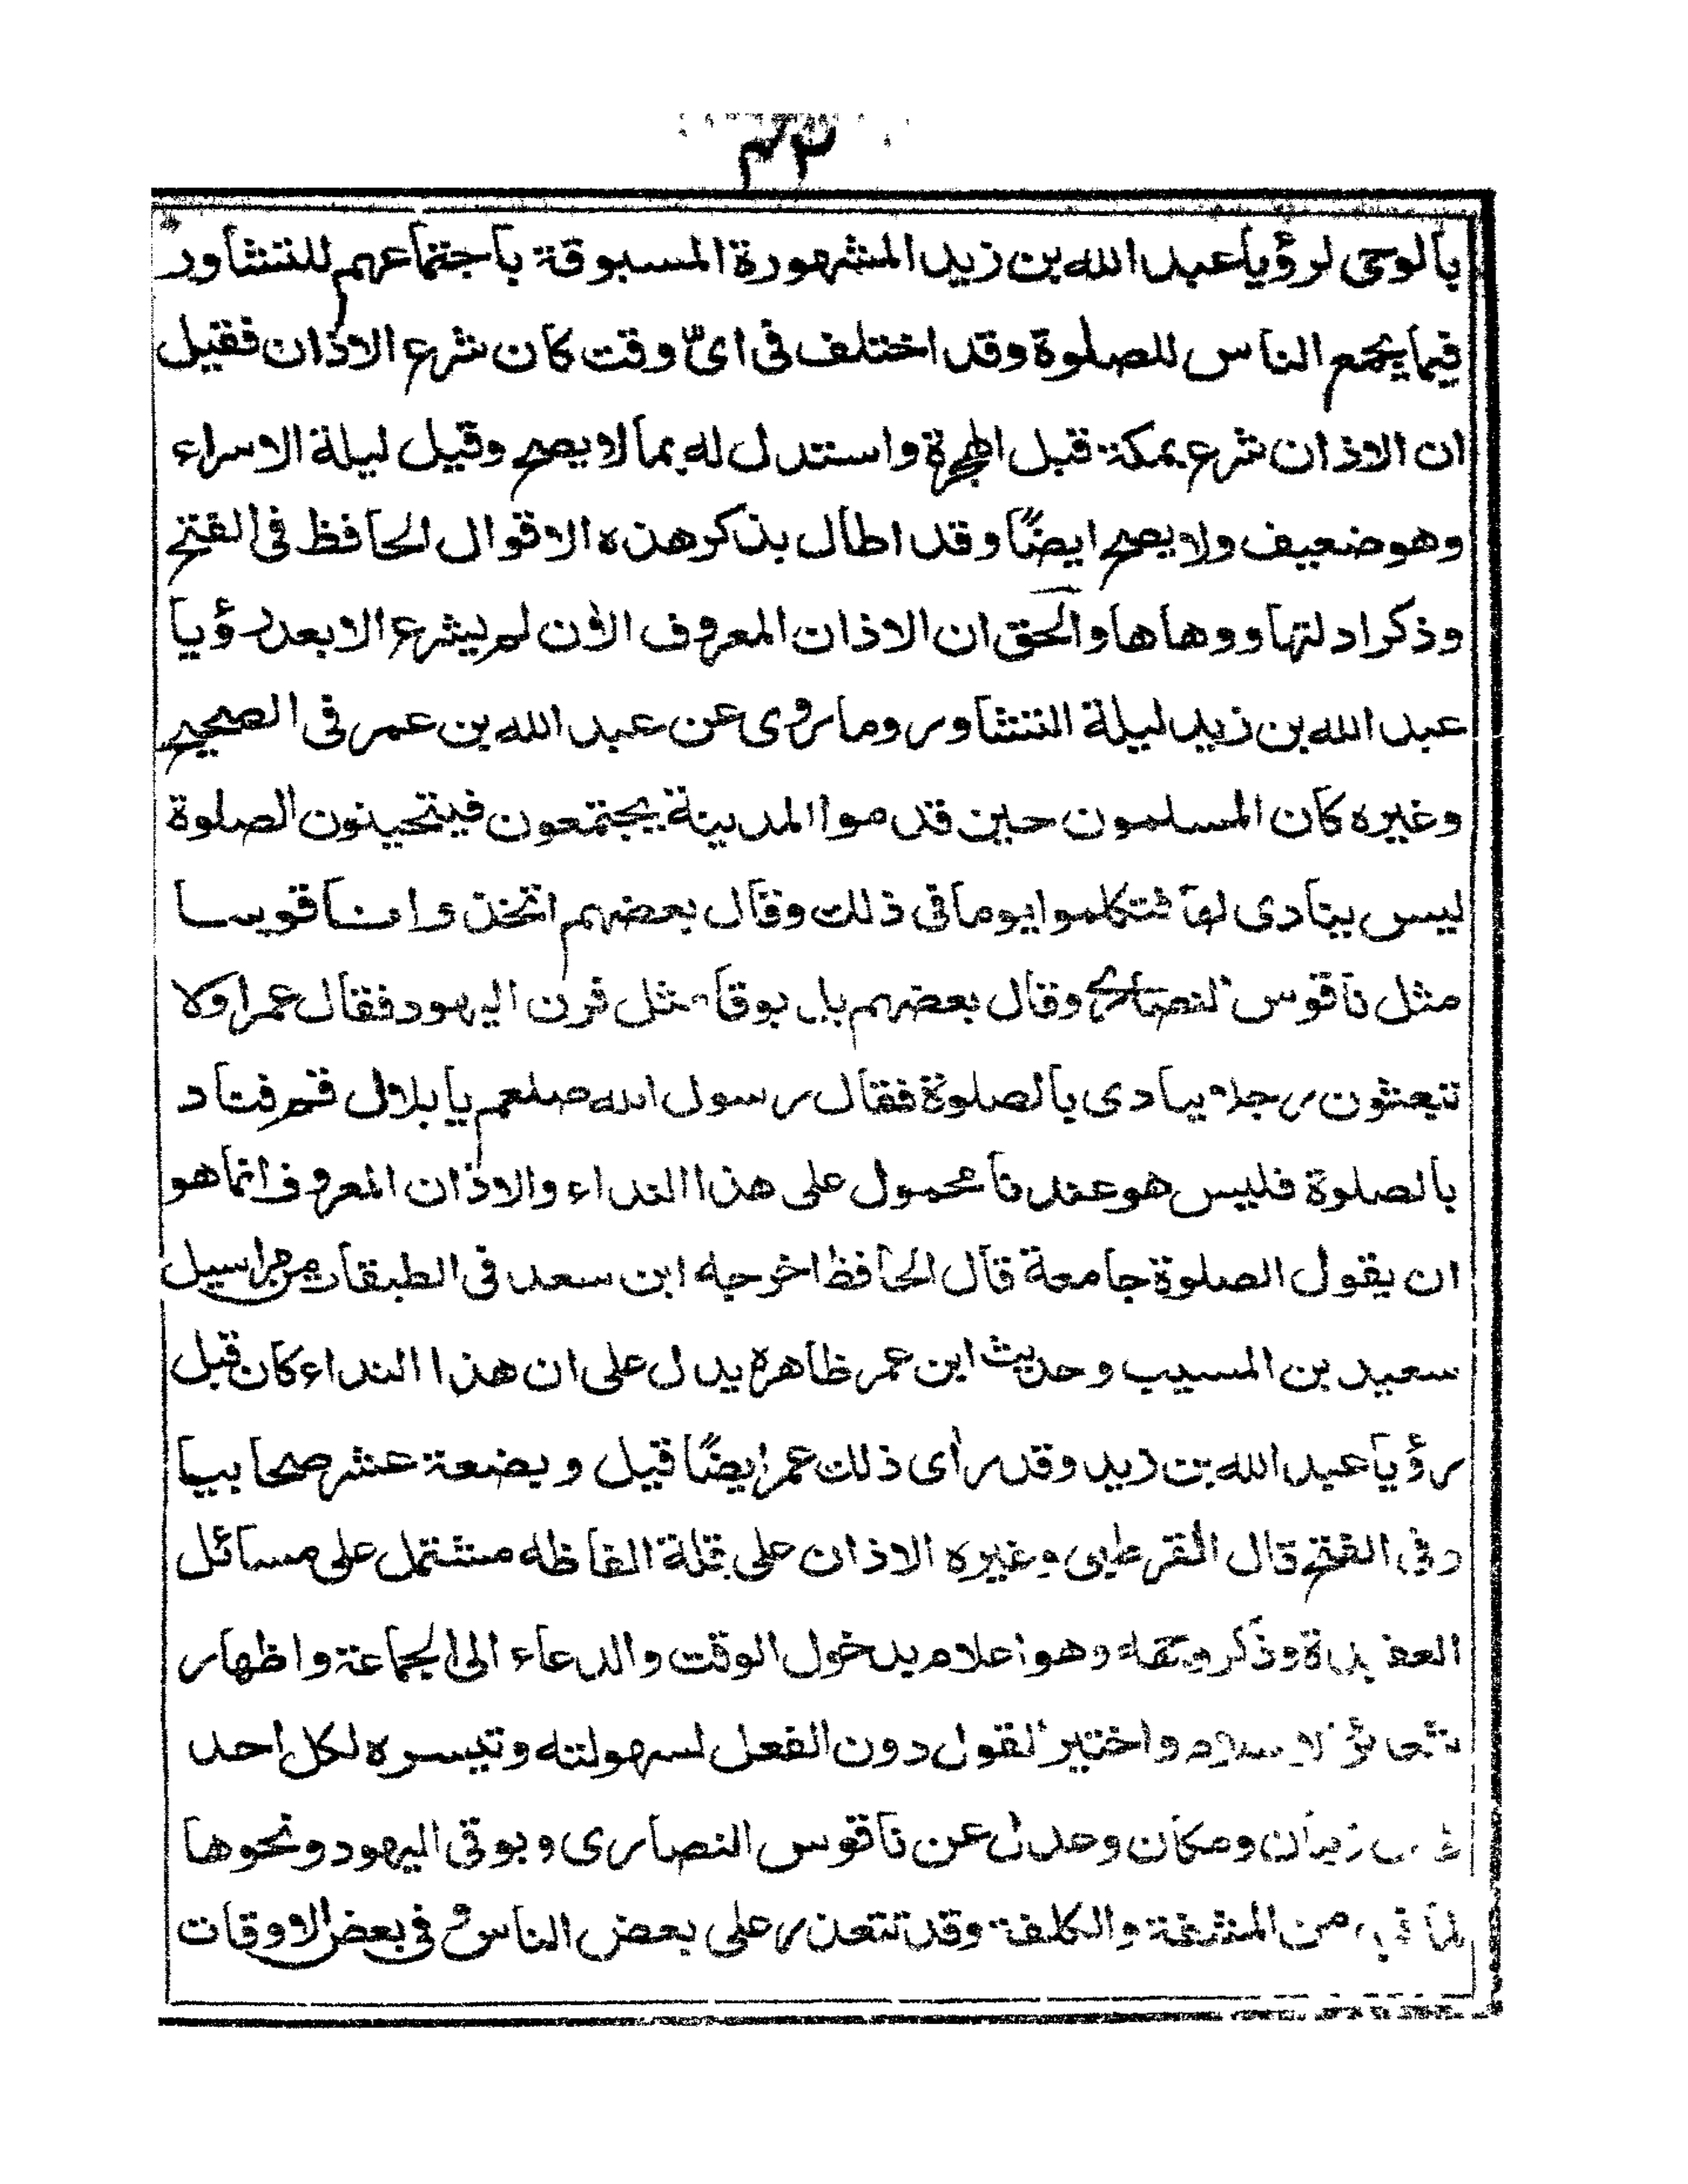 ٣٢
بالوحى لرؤيا عبد الله بن زيد المشهورة المسبوقة باجتماعهم للتشاور
فيما يجمع الناس للصلوة وقد اختلف فى اىّ وقت كان شرع الاذان فقيل
ان الاذان شرع بمكة قبل الهجرة واستدل له بما لا يصح وقيل ليلة الاسراء
وهو ضعيف ولا يصح ايضًا وقد اطال بذكر هذه الاقوال الحافظ فى الفتح
وذكر ادلتها ووهاها والحق ان الاذان المعروف الأن لم يشرع الا بعد رؤيا
عبد الله بن زيد ليلة التشاور وما روى عن عبد الله بن عمر فى الصحيح
وغيره كان المسلمون حين قدموا المدينة يجتمعون فيتحينون الصلوة
ليس ينادى لها فتكلموا يوما فى ذلك وقال بعضهم اتخذوا ناقوسا
مثل ناقوس النصارى وقال بعضهم بل بوقا مثل قرن اليهود فقال عمر اولا
تبعثون رجلا ينادى بالصلوة فقال رسول الله صلعم يا بلال قم فناد
بالصلوة فليس هو عندنا محمول على هذا النداء والاذان المعروف انما هو
ان يقول الصلوة جامعة قال الحافظ اخرجه ابن سعد فى الطبقات من مراسيل
سعيد بن المسيب وحديث ابن عمر ظاهره يدل على ان هذا النداء كان قبل
رؤيا عبد الله بن زيد وقد رأى ذلك عمر ايضًا قيل وبضعة عشر صحابيا
وفى الفتح قال القرطبى وغيره الاذان على قلة الفاظه مشتمل على مسائل
العقيدة وذكر وهو اعلام بدخول الوقت والدعاء الى الجماعة واظهار
شعائر الاسلام واختير القول دون الفعل لسهولته وتيسره لكل احد
زمان ومكان وعدل عن ناقوس النصارى وبوقى اليهود ونحوها
لما فيه من المشقة والكلفة وقد تتعذر على بعض الناس و فى بعض الاوقات